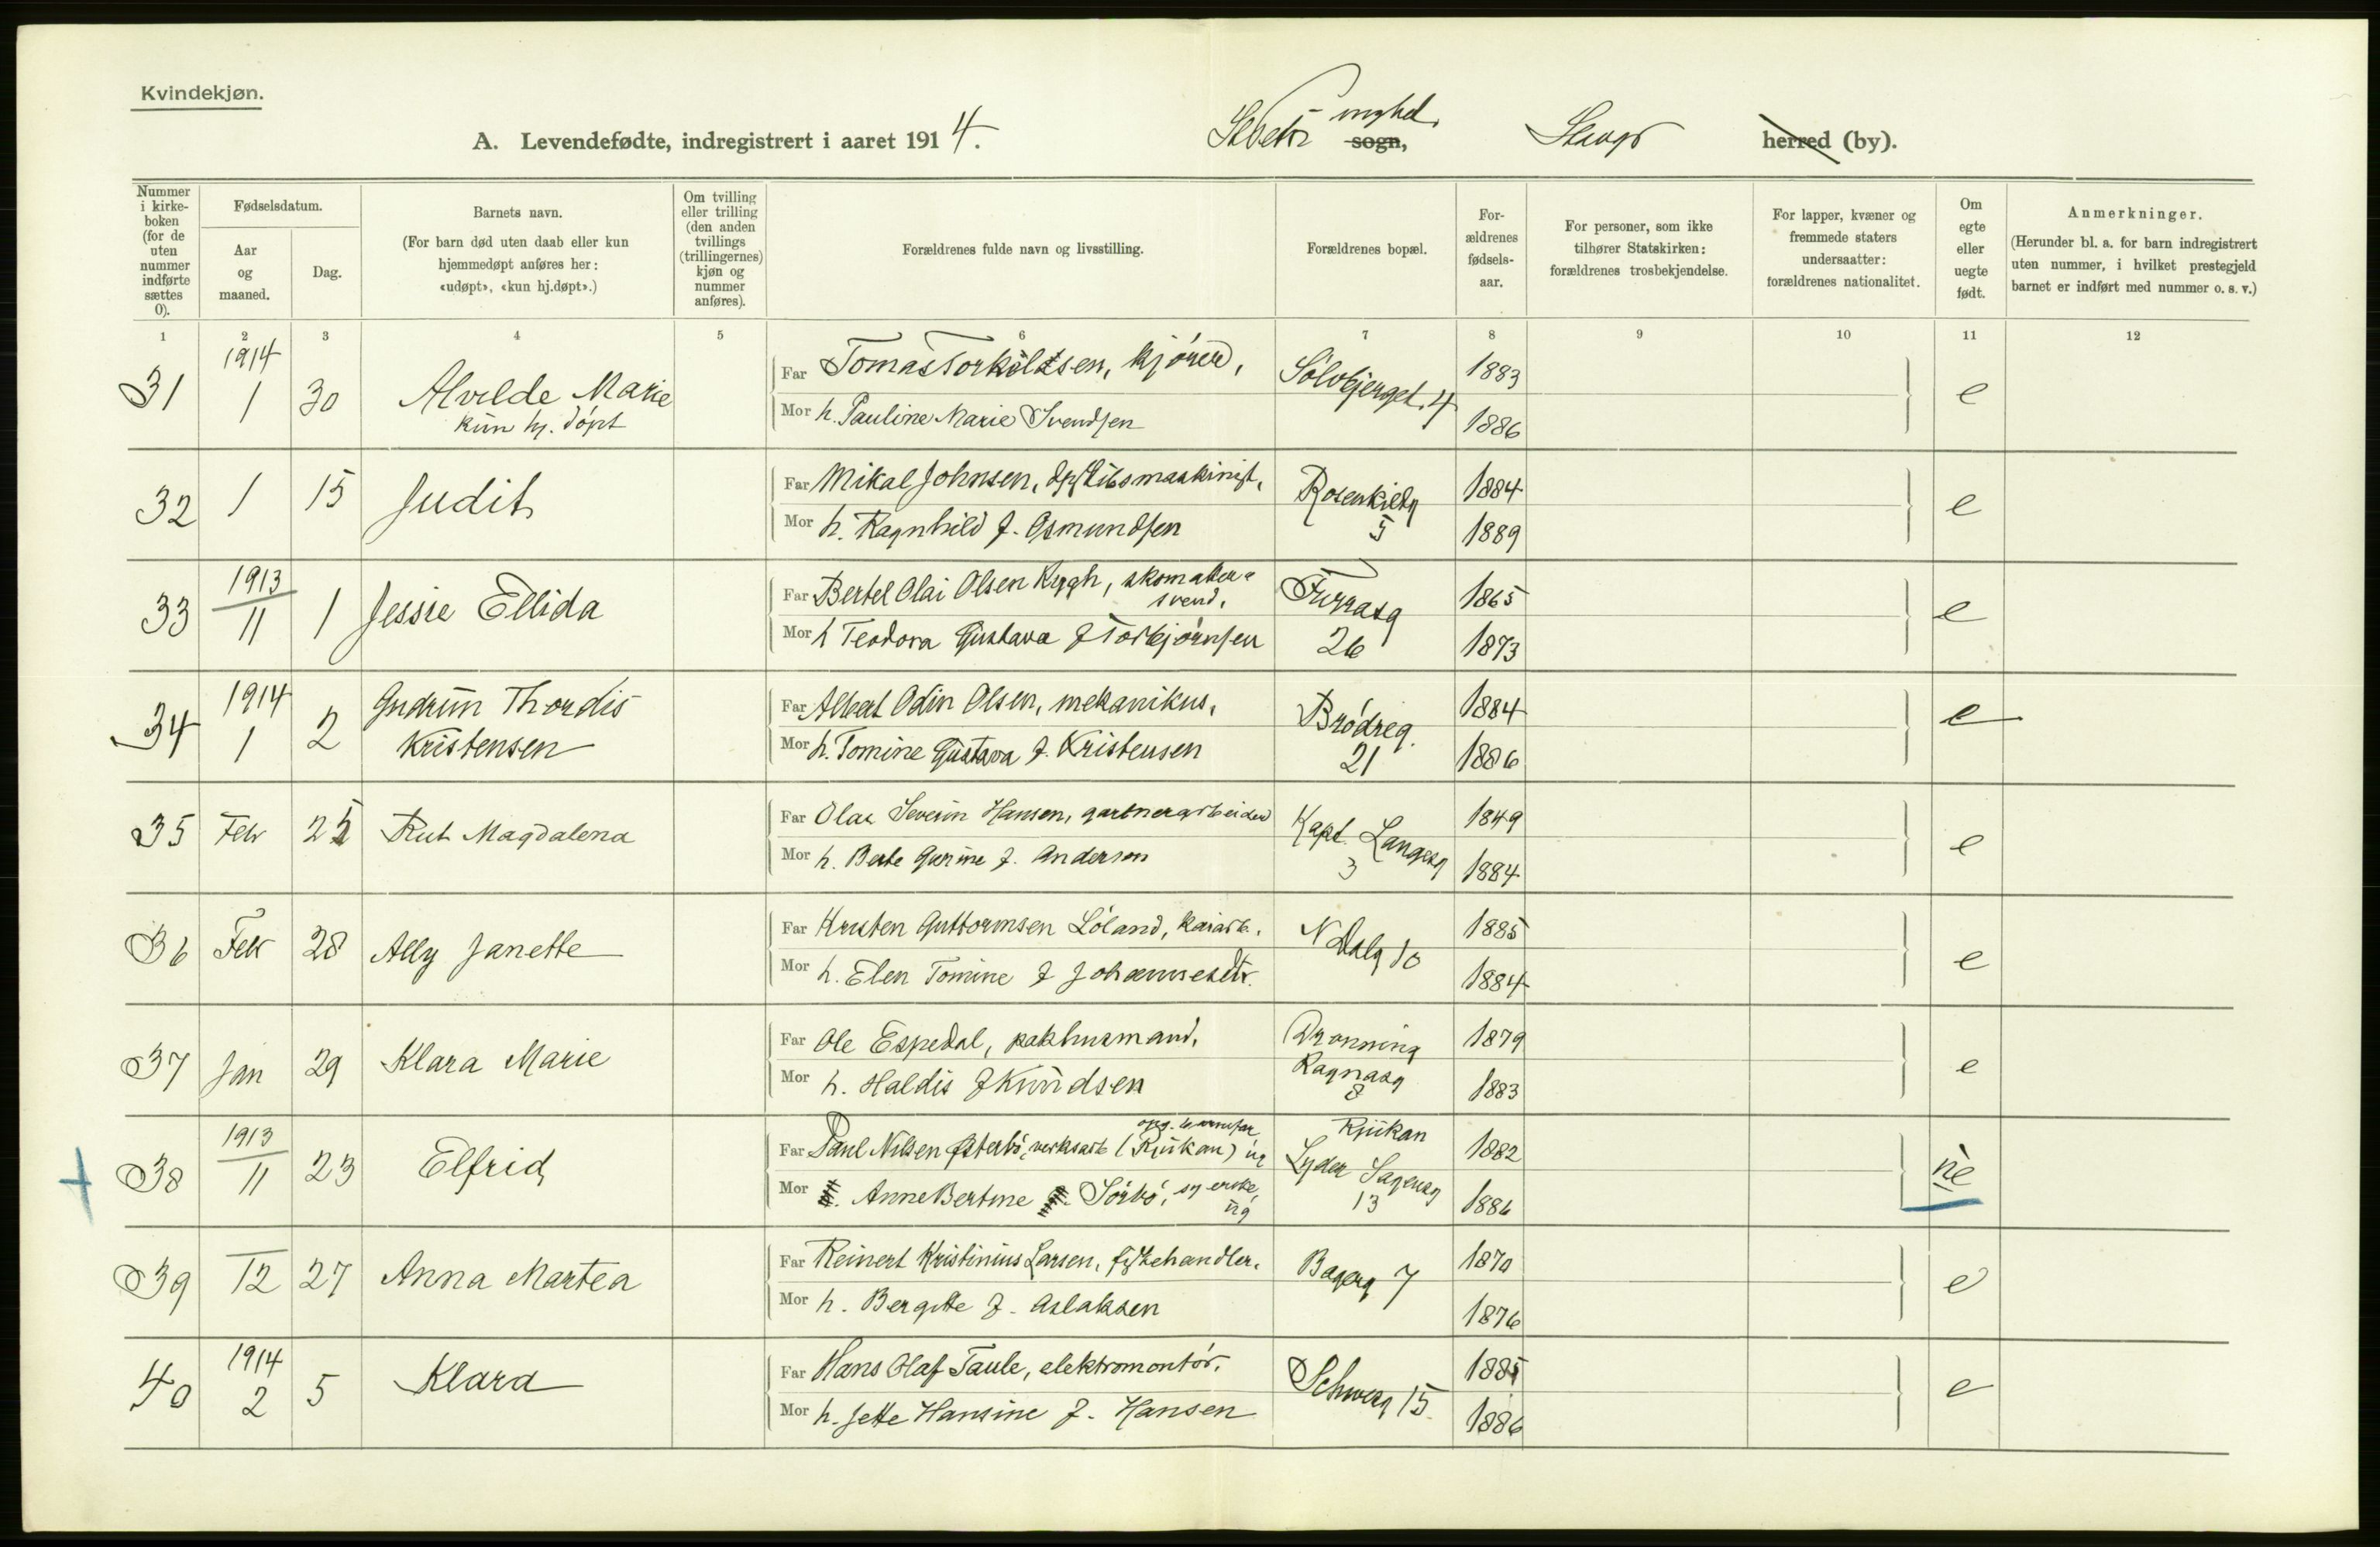 Kvindekjøn.
A. Levendefødte, indregistrert i aaret 1914.
menghed.
sogn,
Stavgr
herred (by).
Nummer i kirke-boken (for de uten nummer indførte sættes 0).
Fødselsdatum.
Aar og maaned.
Dag.
Barnets navn.
(For barn død uten daab eller kun hjemmedøpt anføres her: «udøpt», «kun hj.døpt».)
Om tvilling eller trilling (den anden tvillings (trillingernes) kjøn og nummer anføres).
Forældrenes fulde navn og livsstilling.
Forældrenes bopæl.
For-ældrenes fødsels-aar.
For personer, som ikke tilhører Statskirken: forældrenes trosbekjendelse.
For lapper, kvæner og fremmede staters undersaatter: forældrenes nationalitet.
Om egte eller uegte født.
Anmerkninger.
(Herunder bl. a. for barn indregistrert uten nummer, i hvilket prestegjeld barnet er indført med nummer o. s. v.)
1 2 3 4 5 6 7 8 9 10 11 12
31 1914 1 30 Alvilde Marie kun hj. døpt
Far Tomas Torkildsen, kjører, Sølvbjerget. 4 1883 e
Mor h. Pauline Marie Svendsen 1886
32 1 15 Judit
Far Mikal Johnsen, dpskibsmaskinist, Rosenkildg 5 1884 e
Mor h. Ragnhild f. Osmundsen 1889
33 1913 11 1 Jessie Ellida
Far Bertel Olai Olsen Rygh, skomaker-svend, Furrasg 26 1865 e
Mor h Teodora Gustava f Torbjørnsen 1873
34 1914 1 2 Gudrun Thordis Kristensen
Far Albert Odin Olsen, mekanikus, Brødreg. 21 1884 e
Mor h. Tomine Gustava f. Kristensen 1886
35 Febr 25 Rut Magdalena
Far Olai Severin Hansen, gartnerarbeider Kapt. Langesg 3 1849 e
Mor h. Berte Gurine f. Andersen 1884
36 Febr 28 Ally Janette
Far Kristen Guttormsen Løland, kaiarb. N Dalg 10 1885 e
Mor h. Elen Tomine f Johannesdtr. 1884
37 Jan 29 Klara Marie
Far Ole Espedal, pakhusmand, Dronning Ragnasg 8 1879 e
Mor h. Haldis f Knudsen 1883
38 1913 11 23 Elfrid
Far Paul Nilsen Østebø, verksarb (Rjukan) ug opg. barnefar Rjukan 1882 ue
Mor Anne Bertine Sørbø, syerske, ug Lyder Sagensg 13 1886
39 12 27 Anna Martea
Far Reinert Kristinius Larsen, fiskehandler. Bagerg 7 1870 e
Mor h. Bergitte f. Aslaksen 1876
40 1914 2 5 Klara
Far Hans Olaf Taule, elektromontør. Schwesg 15. 1885 e
Mor h. Jette Hansine f. Hansen 1886